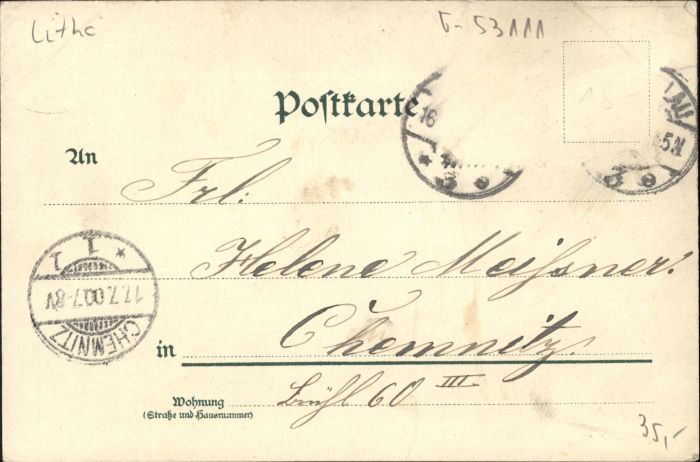 Litho
G-53111
Postkarte
16
5.N
An
Frl:
Helene Meißner.
1 1 *
17.7.00.7-8V
CHEMNITZ
in Chemnitz.
Wohnung Brühl 60 III
(Straße und Hausnummer)
35,-